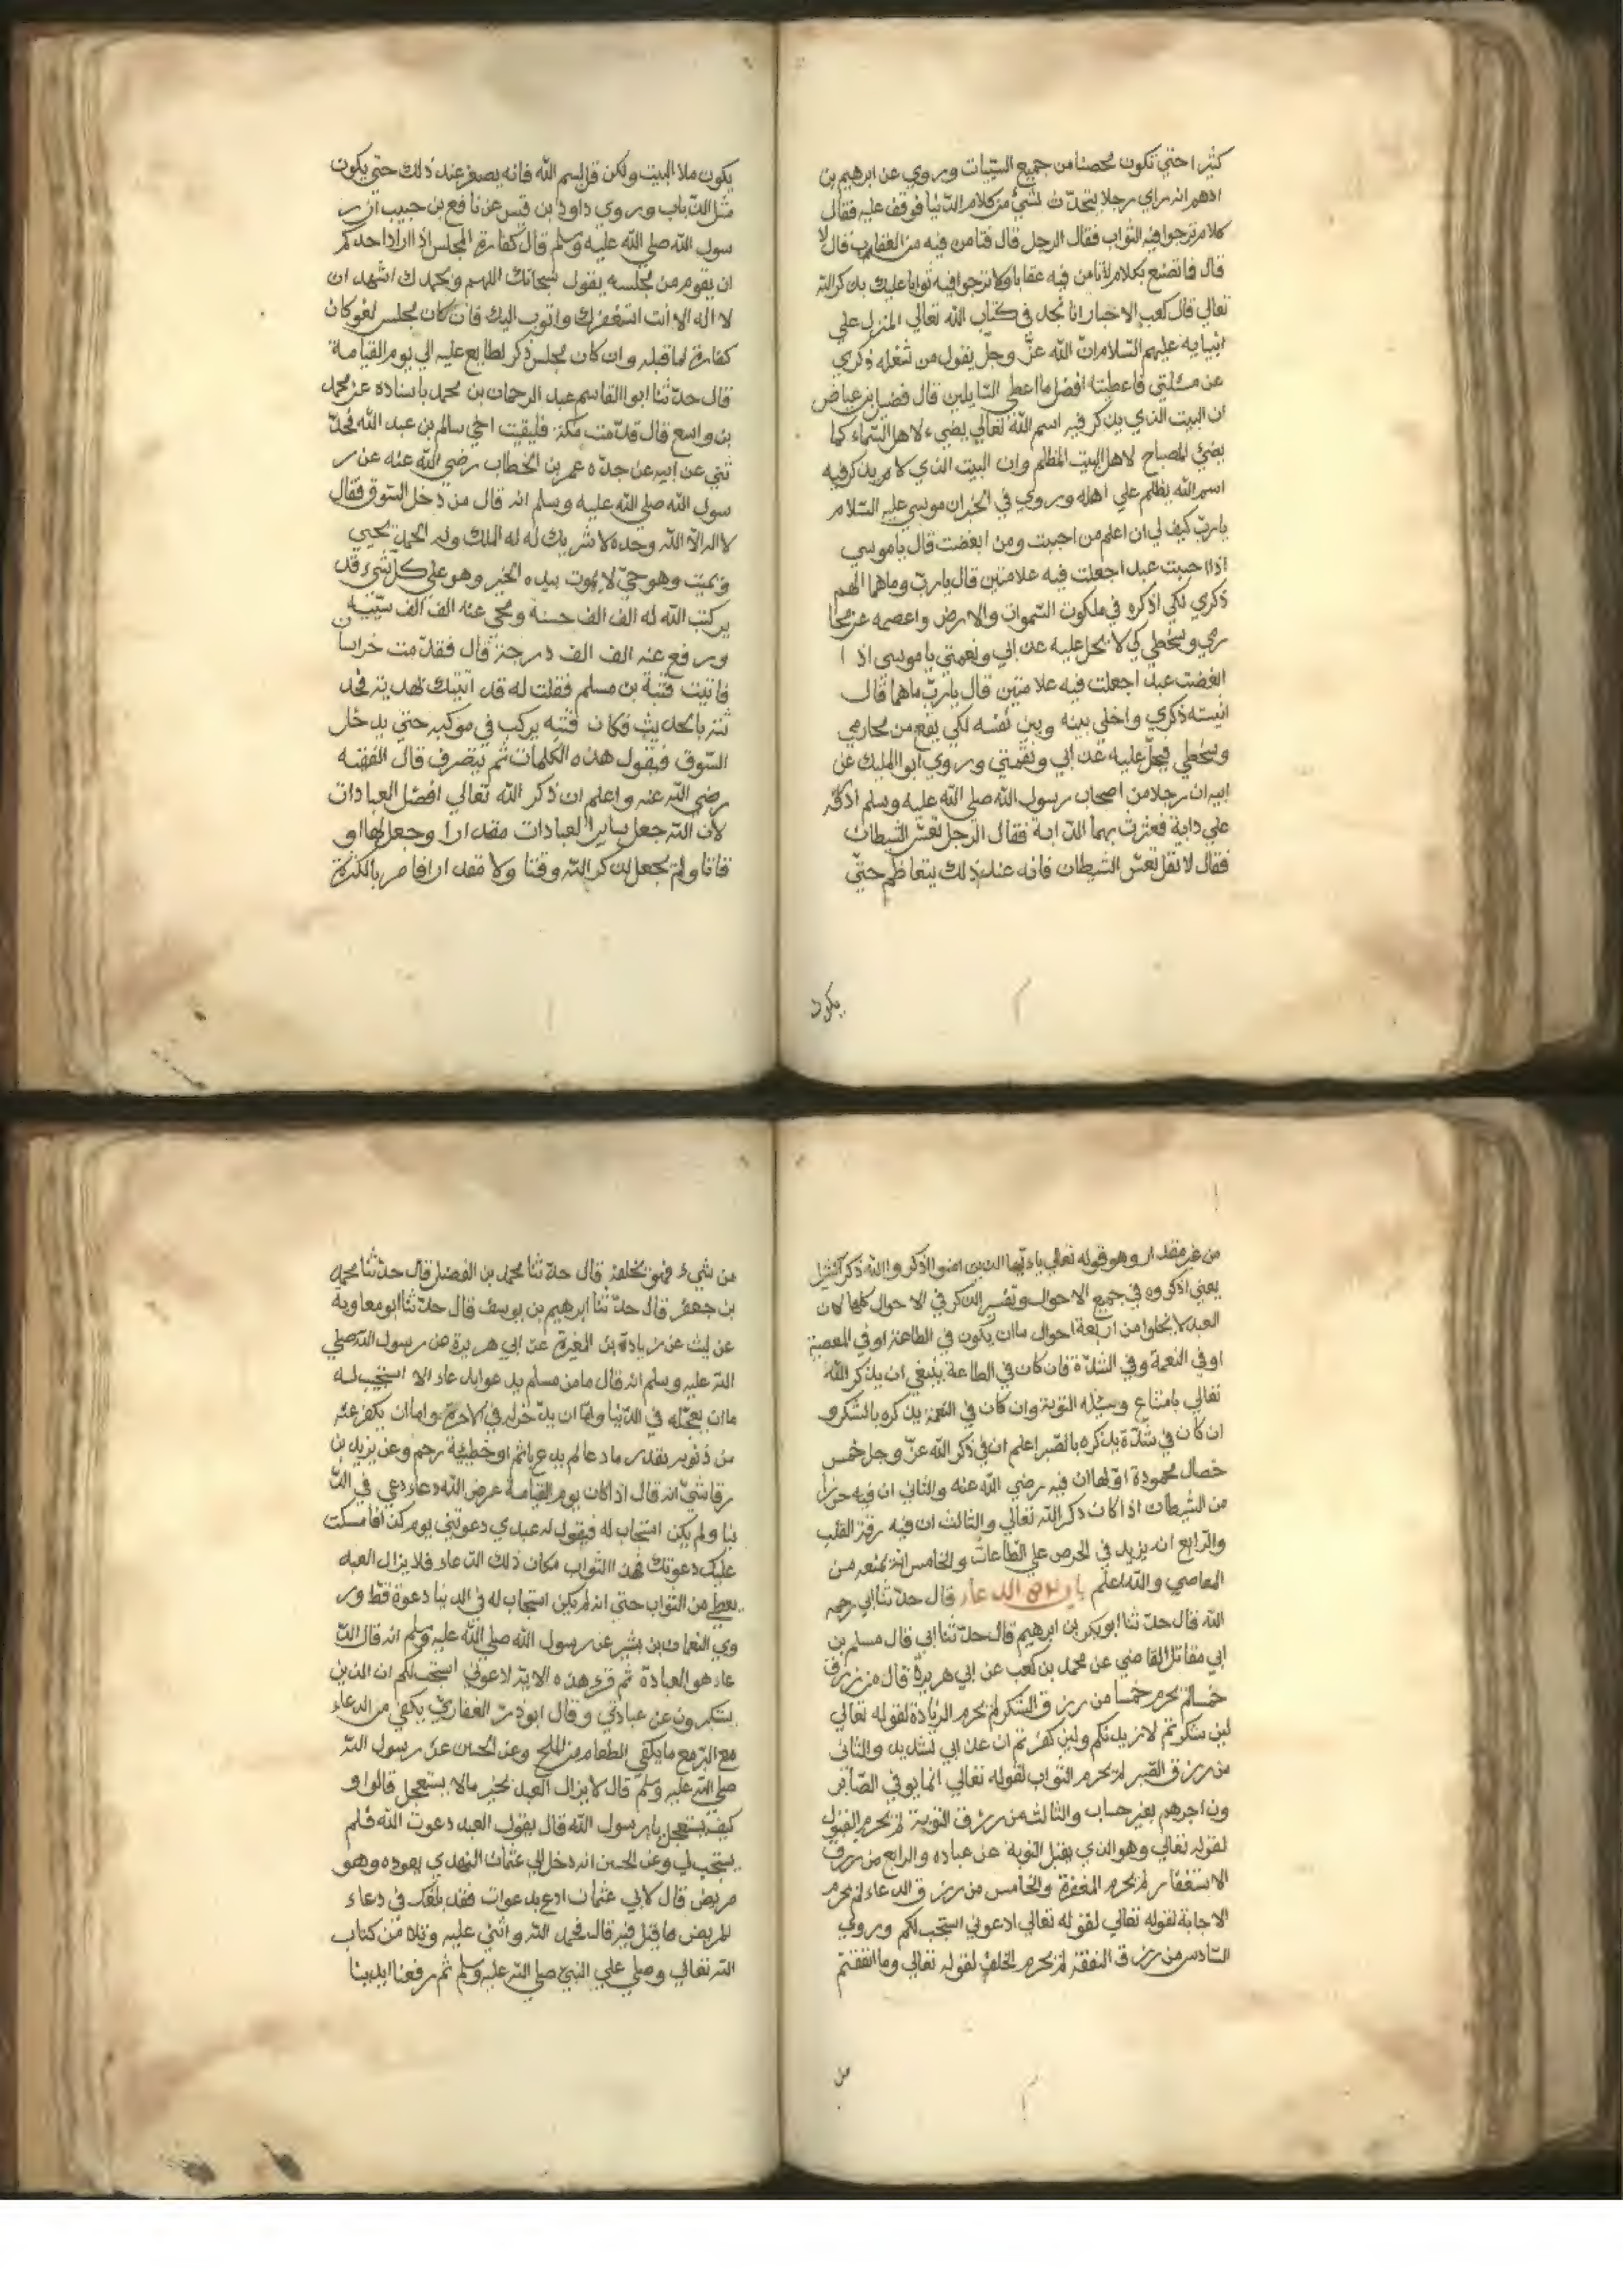 كثيرا حتي تكون محصنا من جميع السيّات وروي عن ابرهيم بن
ادهم انه راي رجلا يتحدّث بشئ من كلام الدّنيا فوقف عليه فقال
كلام ترجوا فيه الثواب فقال الرجل قال فتامن فيه من العقاب قال لا
قال فما تصنع بكلام لا تامن فيه عقابا ولا ترجوا فيه ثوابا عليك بذكر الله
تعالي قال كعب الاحبار انا نجد في كتاب الله تعالي المنزل علي
انبيايه عليهم السّلام انّ الله عزّ وجلّ يقول من شغله ذكري
عن مسئلتي فاعطيته افضل ما اعطي السّايلين قال فضيل بن عياض
ان البيت الذي يذكر فيه اسم الله تعالي يضيء لاهل السّماء كما
يضئ المصباح لاهل البيت المظلم وان البيت الذي لا يذكر فيه
اسم الله يظلم علي اهله وروي في الخبر ان موسي عليه السّلام
يا ربّ كيف لي ان اعلم من احببت ومن ابغضت قال يا موسي
اذا احببت عبدا جعلت فيه علامتين قال يا ربّ وما هما الهم
ذكري لكي اذكره في ملكوت السّموات والارض واعصمه عن محا
رمي وسخطي كي لا يحل عليه عذابي ونقمتي يا موسي اذا
ابغضت عبدا جعلت فيه علامتين قال يا ربّ ما هما قال
انيسته ذكري واخلي بينه وبين نفسه لكي يقع من محارمي
وسخطي فيحلّ عليه عذابي ونقمتي وروي ابو المليك عن
ابيه ان رجلا من اصحاب رسول الله صلي الله عليه وسلم اردفه
علي دابة فعثرت بهما الدّابة فقال الرجل تعس الشيطان
فقال لا تقل تعسّ الشيطان فانه عند ذلك يتعاظم حتيّ
يكون
يكون ملا البيت ولكن قل بسم الله فانه يصغر عند ذلك حتي يكون
مثل الذّباب وروي داود بن قيس عن نافع بن جبيب ان ر
سول الله صلي الله عليه وسلم قال كفارة المجلس اذا اراد احدكم
ان يقوم من مجلسه يقول سبحانك اللهم وبحمدك اشهد ان
لا اله الا انت استغفرك واتوب اليك فان كان مجلس لغو كان
كفارة لما قبله وان كان مجلس ذكر لطابع عليه الي يوم القيامة
قال حدّثنا ابو القاسم عبد الرحمان بن محمد باسناده عن محمد
بن واسع قال قدّمت مكة فلقيت اخي سالم بن عبد الله فحدّ
ثني عن ابيه عن جدّه عمر بن الخطاب رضي الله عنه عن ر
سول الله صلي الله عليه وسلم انه قال من دخل السّوق فقال
لا اله الاّ الله وحده لا شريك له له الملك وله الحمد يحيي
ويميت وهو حيّ لا يموت بيده الخير وهو علي كلّ شيء قد
ير كتب الله له الف الف حسنة ومحي عنه الف الف سيّئة
ورفع عنه الف الف درجة قال فقدّمت خراسان
فاتيت قتبة بن مسلم فقلت له قد اتيتك بهدية فحد
ثته بالحديث فكان قتبه يركب في موكبه حتي يدخل
السّوق فيقول هذه الكلمات ثم ينصرف قال الفقيه
رضي الله عنه واعلم ان ذكر الله تعالي افضل العبادات
لان الله جعل ساير العبادات مقدارا وجعل لها او
قاتا ولم يجعل لذكر الله وقتا ولا مقدارا فامر بالكثرة
من غير مقدار وهو قوله تعالي يا ايّها الذين امنوا اذكروا الله ذكرا كثيرا
يعني اذكروه في جميع الاحوال وتفسير الذكر في الاحوال كلها لان
العبد لا يخلوا من اربعة احوال ما ان يكون في الطاعة او في المعصية
او في النعمة وفي الشدّة فان كان في الطاعة ينبغي ان يذكر الله
تعالي بامتناع وسيئله التوبة وان كان في النعمة يذكره بالشكر و
ان كان في شدّة يذكره بالصّبر اعلم ان في ذكر الله عزّ وجل خمس
خصال محمودة اوّلها ان فيه رضي الله عنه والثاني ان فيه حرزا
من الشيطان اذا كان ذكر الله تعالي والثالث ان فيه رقة القلب
والرّابع انه يزيد في الحرص علي الطّاعات والخامس انه يمنعه من
المعاصي والله اعلم باب من الدعاء قال حدّثنا ابي رحمه
الله قال حدّثنا ابو بكر بن ابرهيم قال حدّثنا ابي قال مسلم بن
ابي مقاتل القاضي عن محمد بن كعب عن ابي هريرة قال من رزق
خمسا لم يحرم خمسا من رزق الشكر لم يحرم الزيادة لقوله تعالي
لين شكرتم لازيدنكم ولين كفرتم ان عذابي لشديد والثاني
من رزق الصّبر لم يحرم الثواب لقوله تعالي انما يوفي الصّابر
ون اجرهم بغير حساب والثالث من رزق التوبة لم يحرم القبول
لقوله تعالي وهو الذي يقبل التوبة عن عباده والرابع من رزق
الاستغفار لم يحرم المغفرة والخامس من رزق الدعاء لم يحرم
الاجابة لقوله تعالي لقوله تعالي ادعوني استجب لكم وروي
السّادس من رزق النفقة لم يحرم الخلف لقوله تعالي وما انفقتم
من
من شيء فهو يخلفه قال حدّثنا محمد بن الفضل قال حدّثنا محمد
بن جعفر قال حدّثنا ابرهيم بن يوسف قال حدّثنا ابو معاوية
عن ليث عن زيادة بن المغيرة عن ابي هريرة عن رسول الله صلي
الله عليه وسلم انه قال ما من مسلم يدعوا بدعاء الا استجيب له
ما ان يعجّله في الدّنيا وامّا ان يدّخر له في الاخرة واما ان يكفر عنه
من ذنوبه بقدر ما دعا لم يدع باثم او خطيئة رحم وعن يزيد بن
رقاشيّ انه قال اذا كان يوم القيامة عرض الله دعاء دعي في الدّ
نيا ولم يكن استجاب له فيقول له عبدي دعوتني يوم كذا فامسكت
عليك دعوتك فهذا الثواب مكان ذلك الدّعاء فلا يزال العبد
يعطي من الثواب حتي انه لم يكن استجاب له في الدنيا دعوة قط ور
وي النعمان بن بشير عن رسول الله صلي الله عليه وسلم انه قال الدّ
عاء هو العبادة ثم قرء هذه الاية ادعوني استجب لكم ان الذين
يستكبرون عن عبادتي وقال ابو ذرّ الغفاري يكفي من الدعاء
مع البرّ مع ما يكفي الطعام من الملح وعن الحسن عن رسول الله
صلي الله عليه وسلم قال لا يزال العبد بخير ما لا يستعجل قالوا و
كيف يستعجل يا رسول الله قال يقول العبد دعوت الله فلم
يستجب لي وعن الحسن انه دخل الي عثمان النهدي يعوده وهو
مريض قال لابي عثمان ادع بدعوات فقد بلغك في دعاء
المريض ما قيل فيه قال فحمد الله واثني عليه وتلا من كتاب
الله تعالي وصلي علي النبيّ صلي الله عليه وسلم ثم رفعنا ايدينا